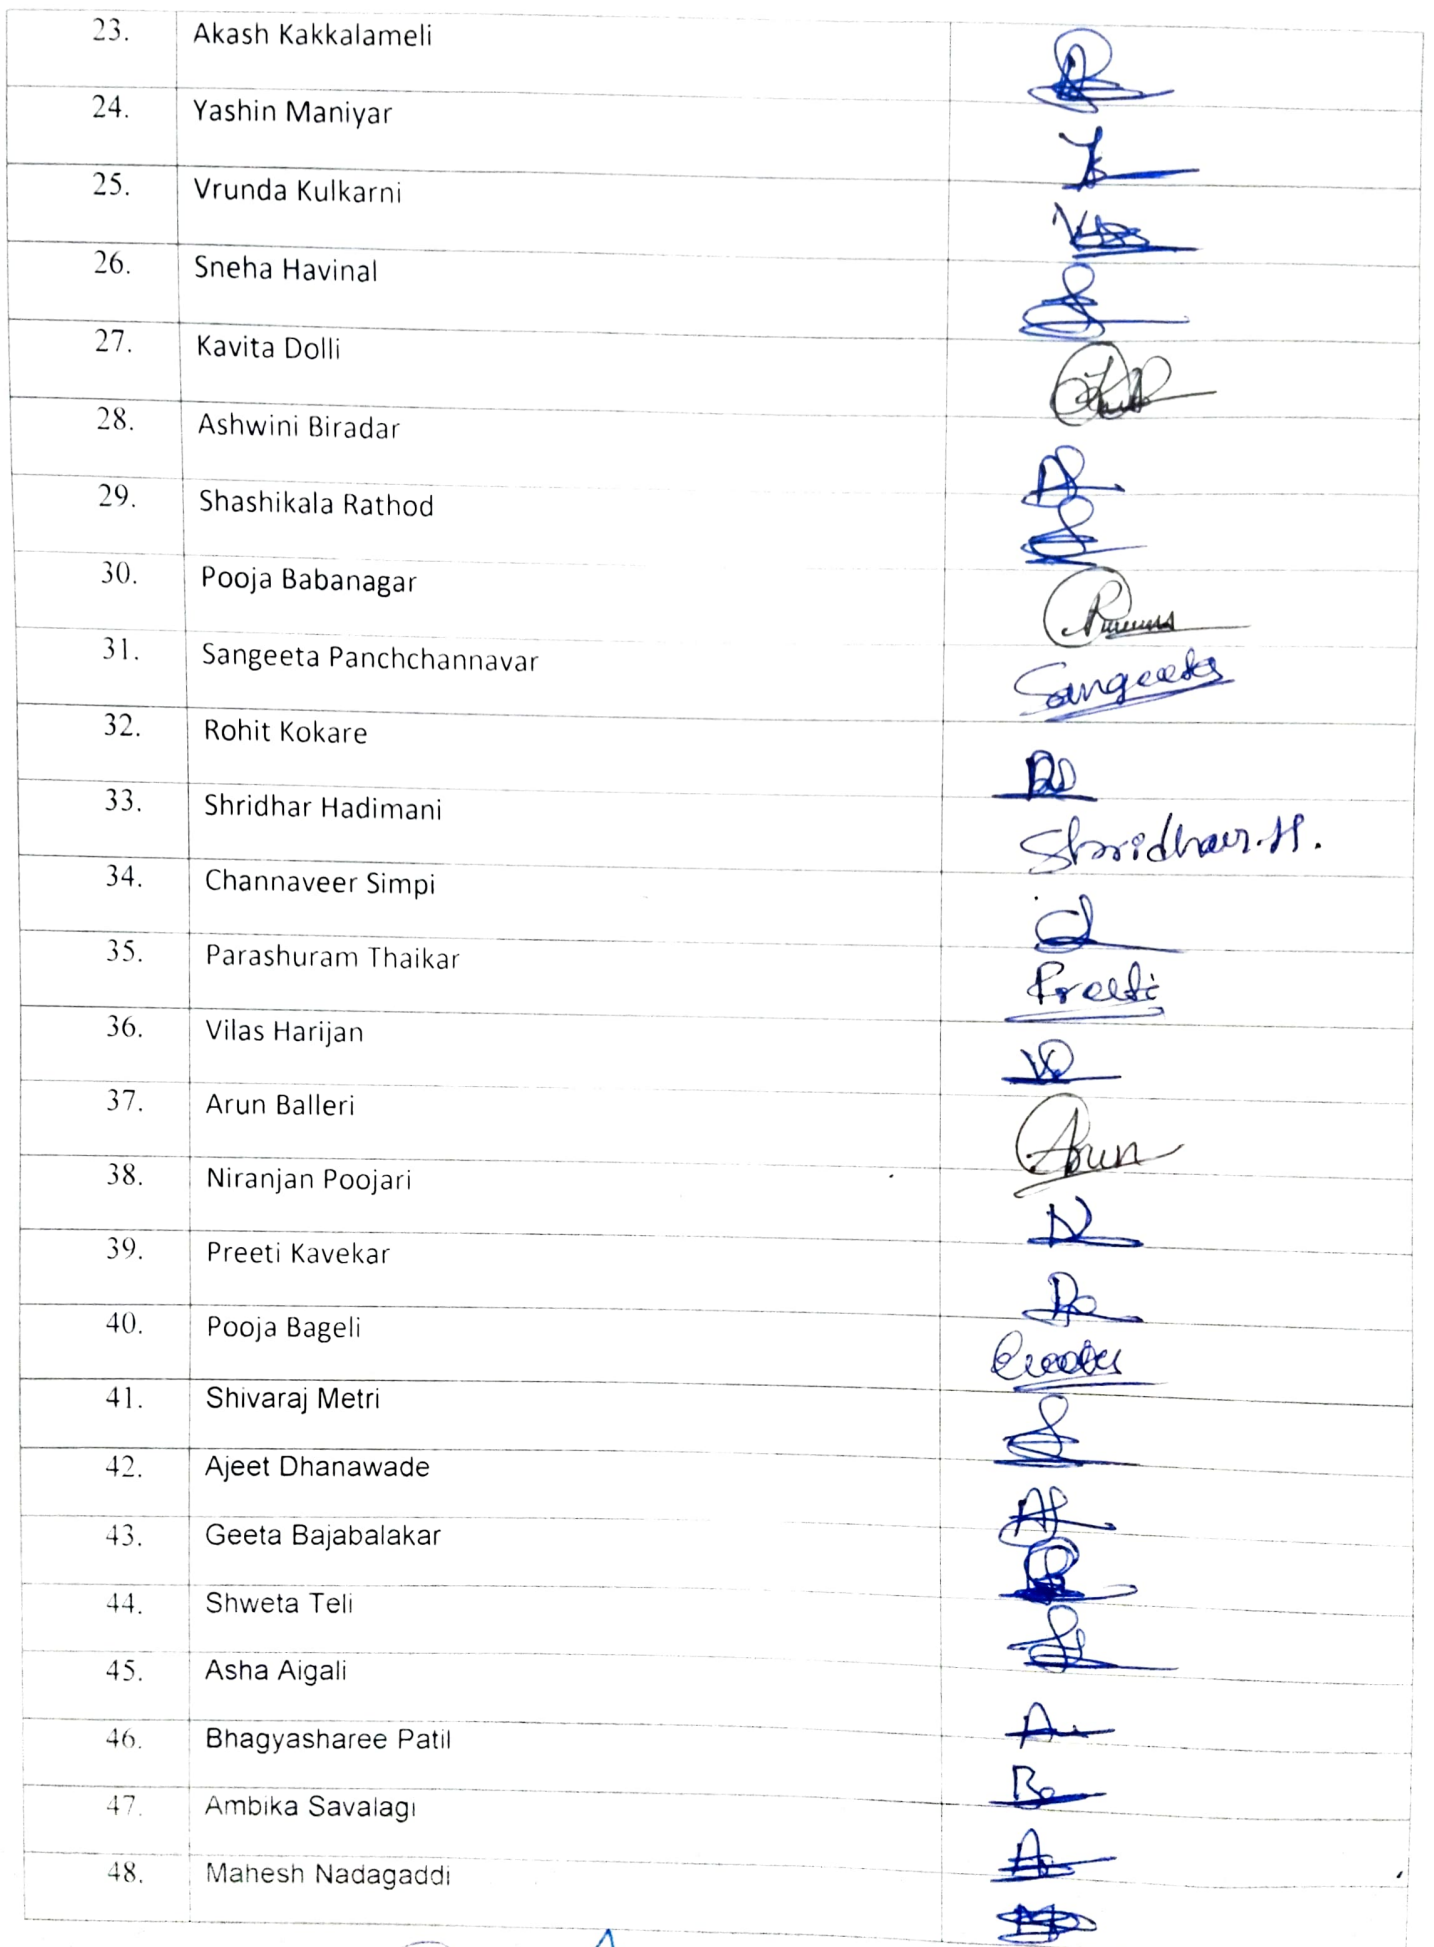 23. Akash Kakkalameli
24. Yashin Maniyar
25. Vrunda Kulkarni
26. Sneha Havinal
27. Kavita Dolli
28. Ashwini Biradar
29. Shashikala Rathod
30. Pooja Babanagar
31. Sangeeta Panchchannavar Sangeeta
32. Rohit Kokare
33. Shridhar Hadimani Shridhar.H.
34. Channaveer Simpi
35. Parashuram Thaikar Preeti
36. Vilas Harijan
37. Arun Balleri Arun
38. Niranjan Poojari
39. Preeti Kavekar
40. Pooja Bageli
41. Shivaraj Metri
42. Ajeet Dhanawade
43. Geeta Bajabalakar
44. Shweta Teli
45. Asha Aigali
46. Bhagyasharee Patil
47. Ambika Savalagi
48. Mahesh Nadagaddi